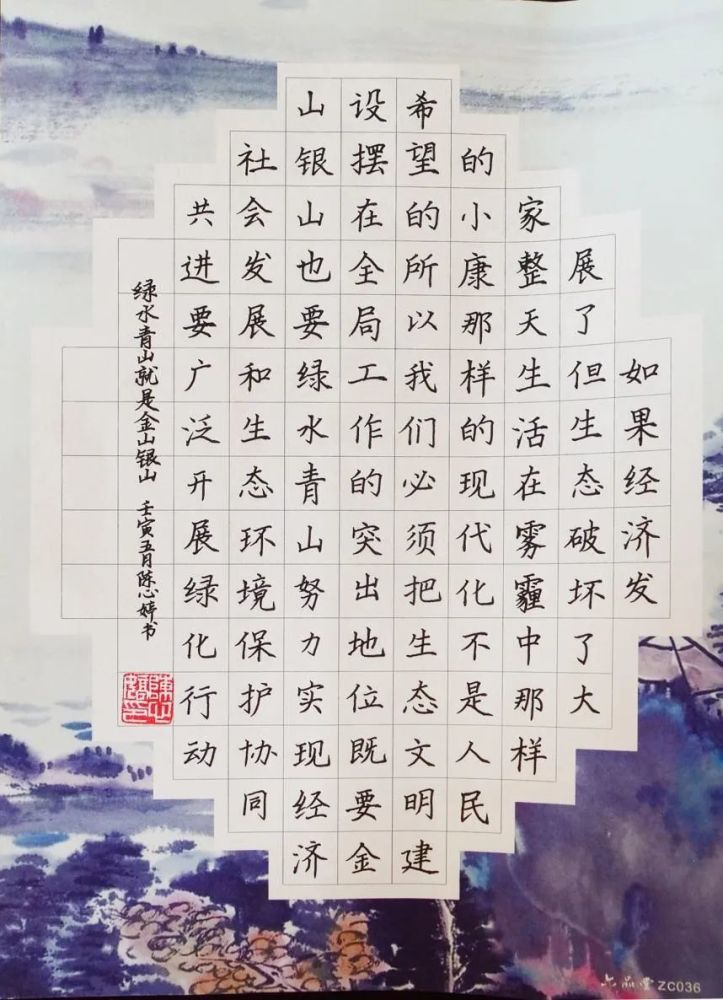 如果经济发
展了但生态破坏了大
家整天生活在雾霾中那样
的小康那样的现代化不是人民
希望的所以我们必须把生态文明建
设摆在全局工作的突出地位既要金
山银山也要绿水青山努力实现经济
社会发展和生态环境保护协同
共进要广泛开展绿化行动
绿水青山就是金山银山 壬寅五月陈心婷书
六品堂 ZC036